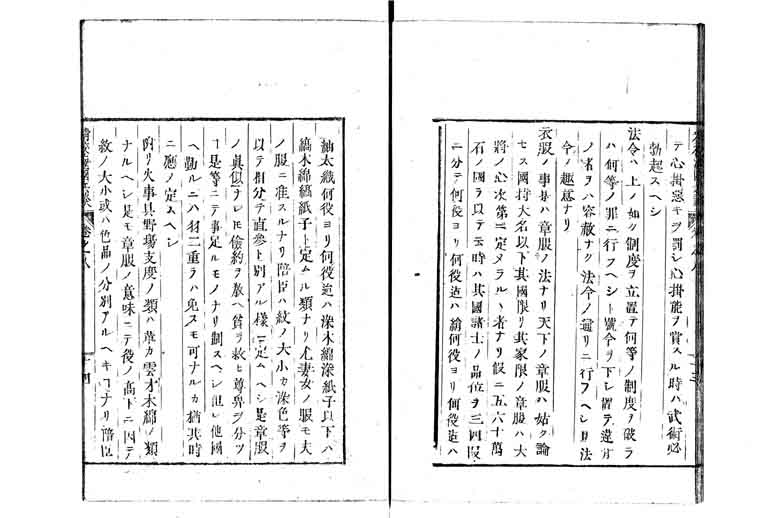 テ心掛惡キヲ罰シ心掛能ヲ賞スル時ハ武術必
勃起スヘシ
法令ハ上ノ如ク制度ヲ立置テ何等ノ制度ヲ破ラ
ハ何等ノ罪ニ行フヘシト號令ヲ下シ置テ違
ノ者ヲハ容赦ナク法令ノ通リニ行フヘシ是法
令ノ趣意ナリ
衣服ノ事是ハ章服ノ法ナリ天下ノ章服ハ姑ク論
セス國持大名以下其國限リ其家限ノ章服ハ大
將ノ心次第ニ定メラルヽ者ナリ假ニ五六十萬
石ノ國ヲ以テ云時ハ其國諸士ノ品位ヲ三四段
ニ分テ何役ヨリ何役迄ハ絹何役ヨリ何役迄ハ
紬太織何役ヨリ何役迄ハ染木綿染紙子以下ハ
縞木綿縞紙子ト定ムル類ナリ尤妻女ノ服モ夫
ノ服ニ准スルナリ陪臣ハ紋ノ大小カ染色等ヲ
以テ相分テ直參ト別アル樣ニ定ムヘシ是章服
ノ眞似ナレモ儉約ヲ教ヘ貧ヲ救ヒ尊卑ヲ分ツ
ヿ是等ニテ事足ルモノナリ制スヘシ但シ他國
ヘ勤ルニハ羽二重ヲハ免スモ可ナルカ猶其時
ニ應ノ定ムヘシ
附リ火事具野場支度ノ類ハ華カ雲才木綿ノ類
ナルヘシ是モ章服ノ意味ニテ役ノ高下ニ因テ
紋ノ大小或ハ色品ノ分別アルヘキヿナリ陪臣
卷之八